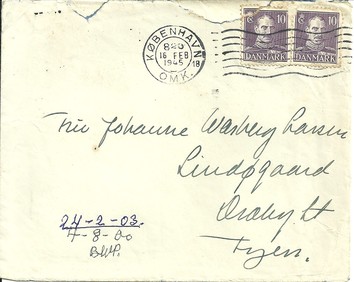 KØBENHAVN
8 20
16 FEB
1945
18
O.M.K.
10
DANMARK
10
DANMARK
Fru Johanne Warberg Larsen
Lindøgaard
Fyen.
24-2-03.
7-8-00
BWP.